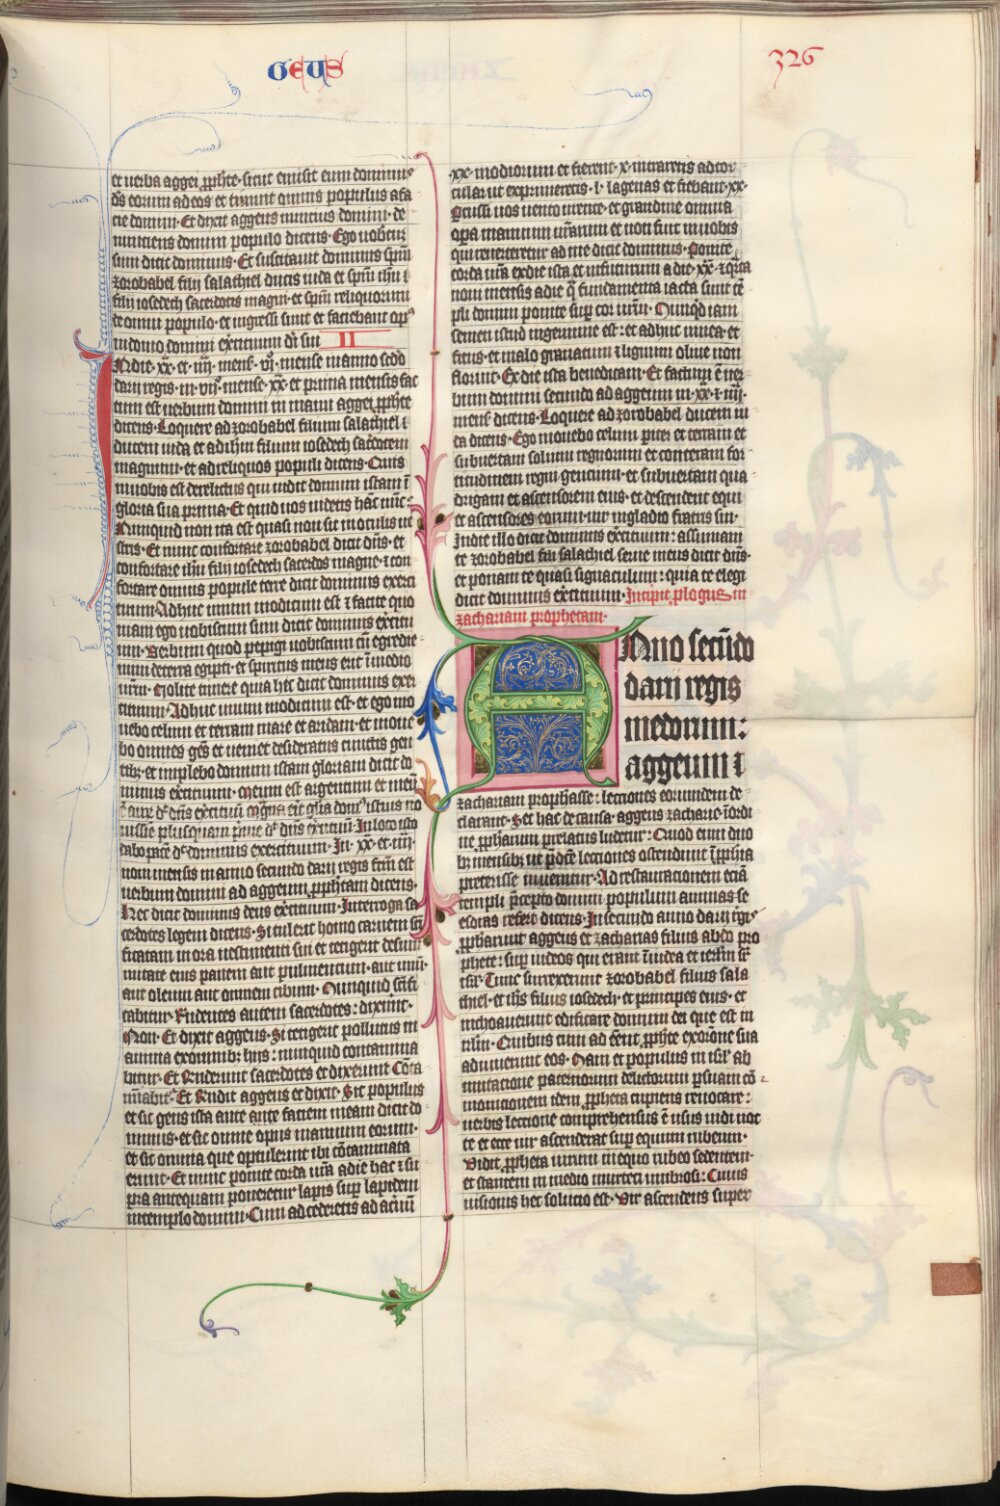 GEUS
326
et uerba aggei pphete sicut misit eum dominus
ds eorum ad eos et timuit omnis populus a fa
cie domini · Et dixit aggeus nuncius domini de
nunciens domini populo dicens · Ego uobiscum
sum dicit dominus · Et suscitauit dominus spm
zorobabel filij salathiel ducis iuda et spm ihu
filij iosedech sacerdotis magni · et spm reliquorum
de omni populo · et ingressi sunt et faciebant op
in domo domini exercituum di sui II
In die · xx · et · iiij · mens · vj · mense in anno sedo
darij regis · in · vij · mense · xx · et prima mensis fac
tum est uerbum domini in manu aggei pphete
dicens · Loquere ad zorobabel filium salathiel
ducem iuda et ad ihm filium iosedech sacdotem
magnum · et ad reliquos populi dicens · Quis
in uobis est derelictus qui uidit domum istam i
gloria sua prima · Et quid uos uidetis hac nuc
Nunquid non ita est quasi non sit in oculis ue
stris · Et nunc confortare zorobabel dicit dns · et
confortare ihu fili iosedech sacerdos magne · con
fortare omnis popule terre dicit dominus exerci
tuum · Adhuc unum modicum est et facite quo
niam ego uobiscum sum dicit dominus exercitu
um · Verbum quod pepigi uobiscum cu egredie
mini de terra egipti · et spiritus meus erit i medio
urm · Nolite timere quia hec dicit dominus exer
cituum · Adhuc unum modicum est · et ego mo
uebo celum et terram mare et aridam · et moue
bo omnes ges et ueniet desideratus cunctis gen
tibz · et implebo domum istam gloriam dicit do
minus exercituum · Meum est argentum et meu
aurz dt dns exercituu Magna erit glia dom istius no
uissie plusquam prime dt dns exercituu · In loco isto
dabo pace dt dominus exercituum · In · xx · et · iiij ·
noni mensis in anno secundo darij regis scm est
uerbum domini ad aggeum pphetam dicens ·
Hec dicit dominus deus exercituum · Interroga sa
cerdotes legem dicens · Si tulerit homo carnem sci
ficatam in ora uestimenti sui et tetigerit de sum
mitate eius panem aut pulmentum · aut uinu
aut oleum aut omnem cibum · Nunquid scifi
cabitur · Rndentes autem sacerdotes : dixerunt ·
Non · Et dixit aggeus · Si tetigerit pollutus in
anima ex omnibz hijs : nunquid contamina
bitur · Et Rnderunt sacerdotes et dixerunt Cota
minabit · Et Rndit aggeus et dixit · Sic populus
et sic gens ista ante faciem meam dicit do
minus · et sic omne opus manuum eorum ·
et sic omnia que optulerint ibi cotaminata
erunt · Et nunc ponite corda ura a die hac et su
pra antequam poneretur lapis sup lapidem
in templo domini · Cum accederetis ad aceruu
xx modiorum et fierent · x · intraretis ad tor
cular ut exprimeretis · l · lagenas et fiebant · xx ·
Percussi uos uento urente · et grandine omnia
opa manuum urarum et non fuit in uobis
qui reuerteretur ad me dicit dominus · Ponite
corda ura ex die ista et in futurum a die · xx · et qrta
noni mensis a die q fundamenta iacta sunt te
pli domini ponite sup cor urm · Nunqd iam
semen istud in germine est : et adhuc uinea · et
ficus · et malogranatum et lignum oliue non
floruit · Ex die ista benedicam · Et factum e uer
bum domini secundo ad aggeum in · xx · et iiij ·
mens dicens · Loquere ad zorobabel ducem iu
da dicens · Ego mouebo celum piter et terram et
subuertam solium regnorum et conteram for
titudinem regni gentium · et subuertam qua
drigam et ascensorem eius · et descendent equi
et ascensores eorum · uir in gladio fratris sui ·
In die illo dicit dominus exercituum : assumam
te zorobabel fili salathiel serue meus dicit dns ·
et ponam te quasi signaculum : quia te elegi
dicit dominus exercituum · Incipit plogus in
zachariam prophetam ·
Anno secundo
darij regis
medorum :
aggeum
zachariam prophasse : lectiones eorumdem de
clarant · Set hac de causa · aggeus zacharie i ordi
ne ppharum prelatus uidetur : Quod enim duo
bz mensibz ut pdcte lectiones ostendunt i pphia
preterisse inuenitur · Ad restaurationem etia
templi pcepto domini populum animasse
esdras refert dicens · In secundo anno darij rgis
ppharunt aggeus et zacharias filius abdo pro
phete : sup iudeos qui erant i iudea et ierlm
isrl · Tunc surrexerunt zorobabel filius sala
thiel · et ihs filius iosedech · et principes eius · et
inchoauerunt edificare domum dei que est in
irlm · Quibus cum ad erent pphete exorone sua
adiuuerunt eos · Nam et populus in isrl ab
imitatione paternorum delictorum psuam co
monitionem idem ppheta cupiens reuocare :
uerbis lectione comprehensus e usus uidi noc
te et ecce uir ascenderat sup equum rubeum ·
Vidit ppheta uirum in equo rubeo sedentem ·
et stantem in medio mirteti umbrosi : Cuius
uisionis hec solutio est · Vir ascendens super